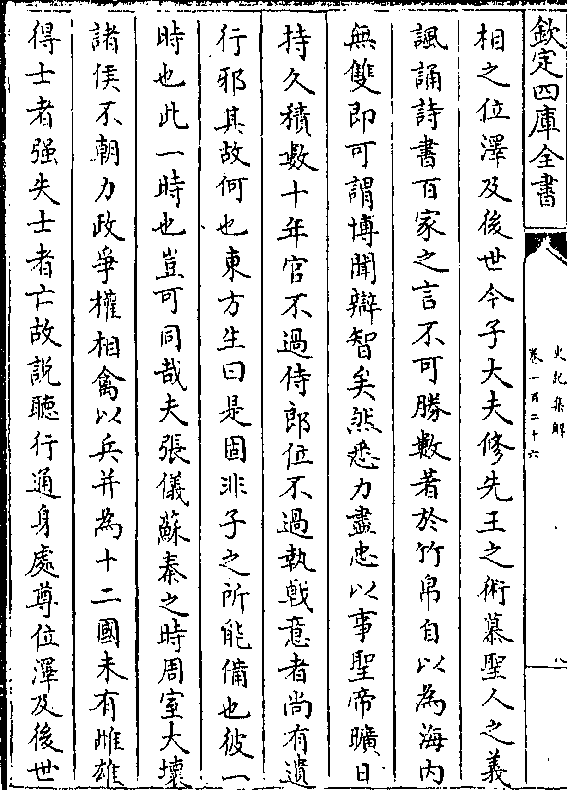 欽定四庫全書
史記集解
卷一百二十六
八
相之位澤及後世今子大夫修先王之術慕聖人之義
諷誦詩書百家之言不可勝數著於竹帛自以為海内
無雙即可謂博聞辯智矣然悉力盡忠以事聖帝曠日
持久積數十年官不過侍郎位不過執㦸意者尚有遺
行邪其故何也東方生曰是固非子之所能備也彼一
時也此一時也豈可同哉夫張儀蘇秦之時周室大壞
諸侯不朝力政爭權相禽以兵并為十二國未有雌雄
得士者强失士者亡故説聽行通身處尊位澤及後世